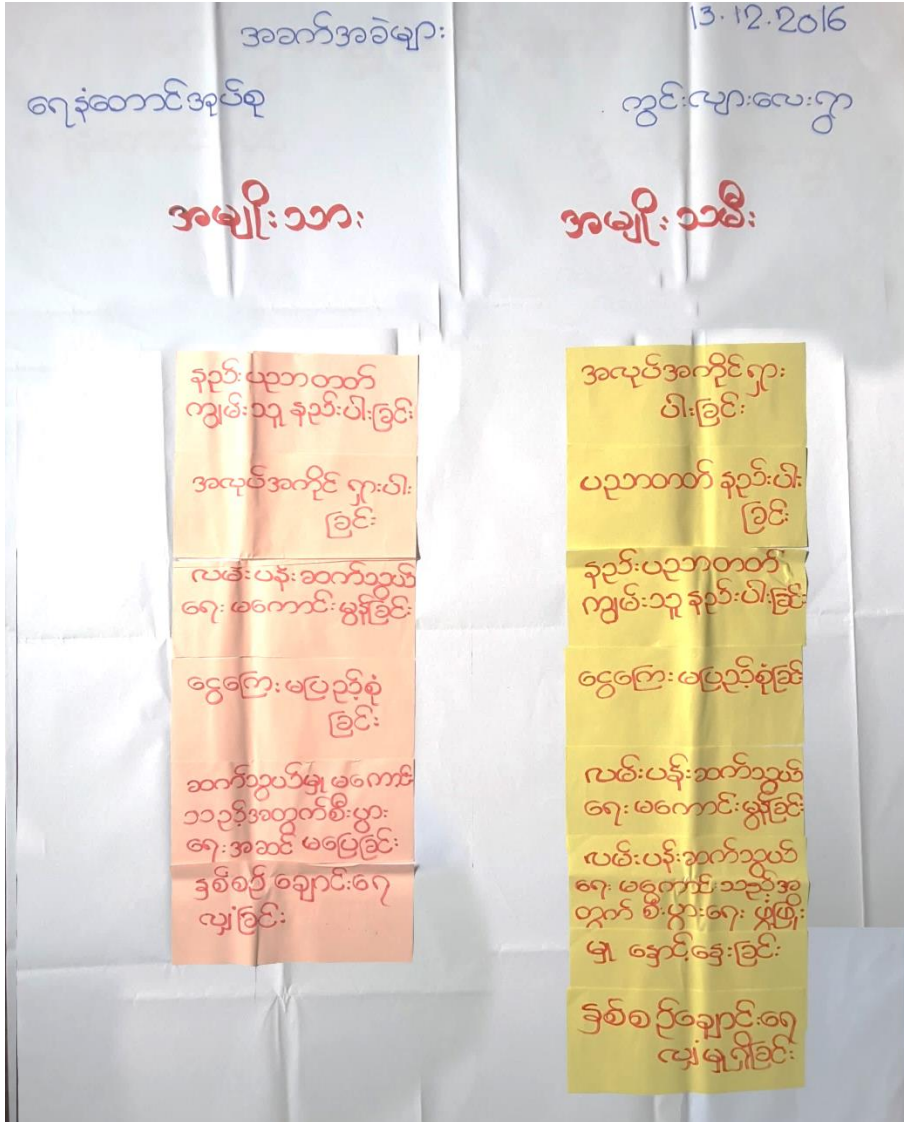 အခက်အခဲများ 13.12.2016
ရေနံတောင်အုပ်စု ကွင်းလျားလေးရွာ
အမျိုးသား အမျိုးသမီး
နည်းပညာတတ်
ကျွမ်းသူ နည်းပါးခြင်း
အလုပ်အကိုင် ရှားပါး
ခြင်း
လမ်းပန်းဆက်သွယ်
ရေး မကောင်းမွန်ခြင်း
ငွေကြေး မပြည့်စုံ
ခြင်း
ဆက်သွယ်မှု မကောင်း
သည့်အတွက်စီးပွား
ရေး အဆင် မပြေခြင်း
နှစ်စဉ် ချောင်းရေ
လျှံခြင်း
အလုပ်အကိုင်ရှား
ပါးခြင်း
ပညာတတ် နည်းပါး
ခြင်း
နည်းပညာတတ်
ကျွမ်းသူ နည်းပါးခြင်း
ငွေကြေး မပြည့်စုံခြင်
လမ်းပန်းဆက်သွယ်
ရေး မကောင်းမွန်ခြင်း
လမ်းပန်းဆက်သွယ်
ရေး မကောင်းသည့်အ
တွက် စီးပွားရေး ဖွံ့ဖြိုး
မှု နှောင့်နှေးခြင်း
နှစ်စဉ်ချောင်းရေ
လျှံမှုရှိခြင်း